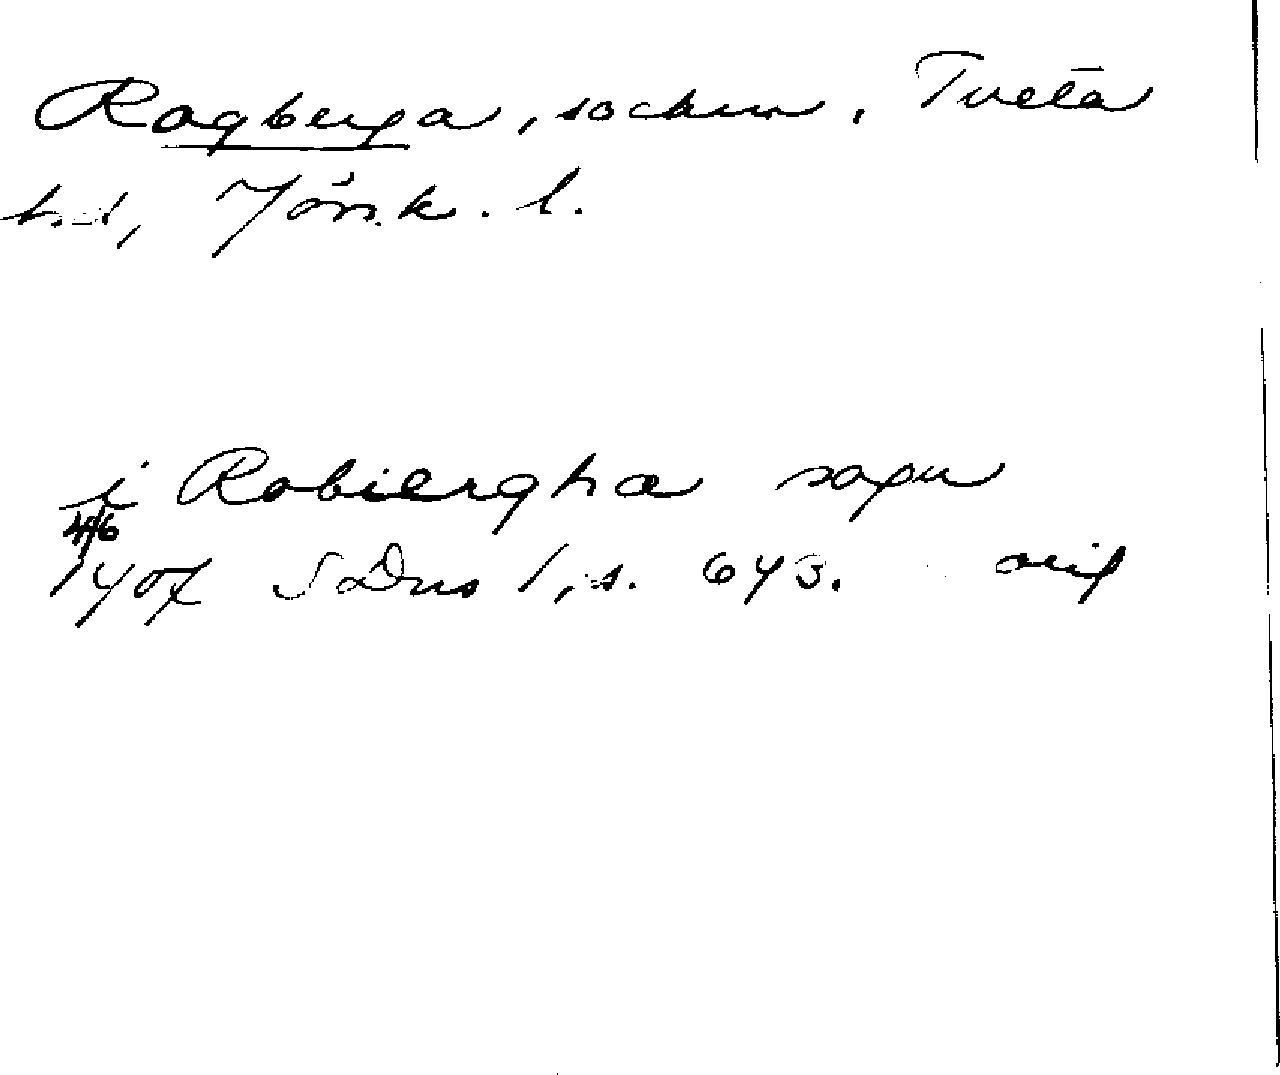 Rogberga, socken, Tveta
hd, Jönk. l.
i Robiergha sokn
4/6
1407 SDns 1, s. 643. orig